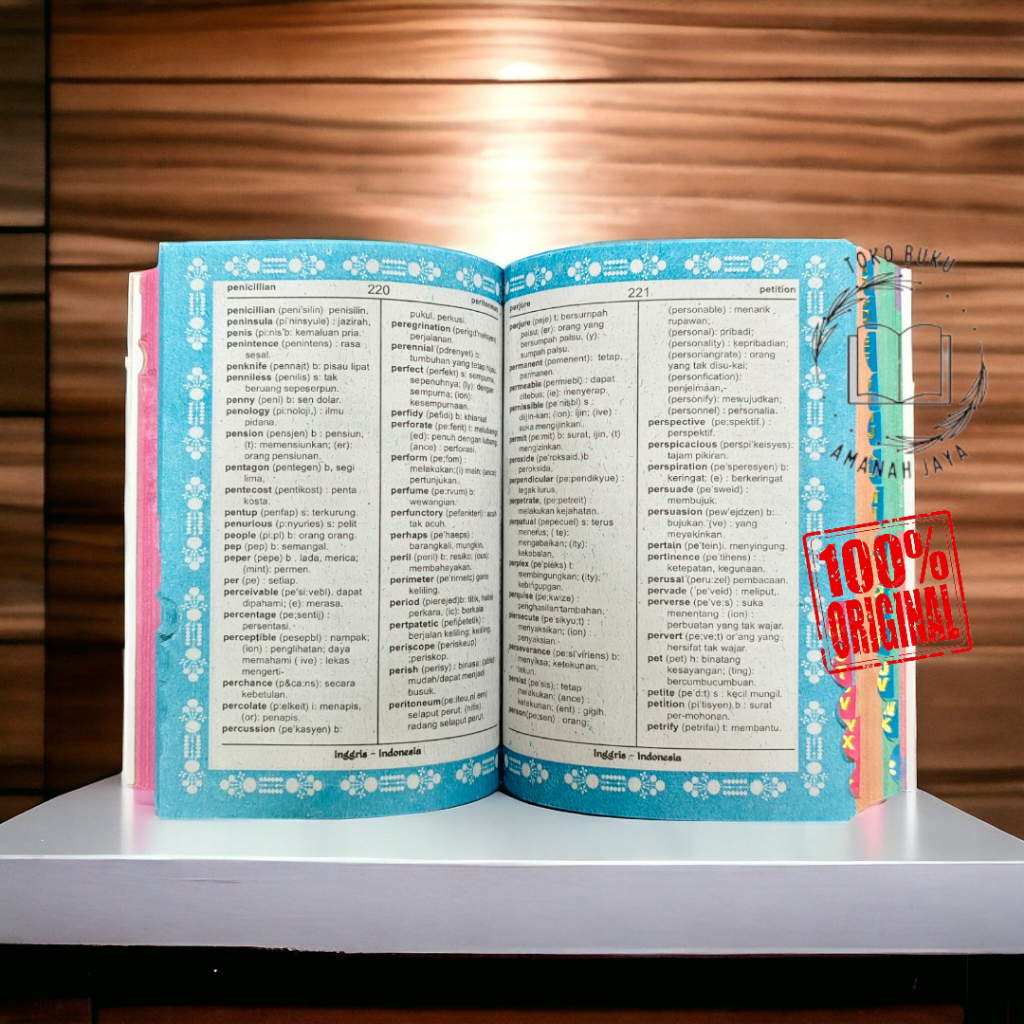 penicillian 220 peritoneum
penicillian (peni'silin) penisilin,
peninsula (pi'ninsyule) : jazirah,
penis (pi:nis'b: kemaluan pria.
penintence (penintens) : rasa
sesal.
penknife (pennait) b: pisau lipat
penniless (penilis) s: tak
beruang sepeserpun.
penny (peni) b: sen dolar.
penology (pi:noloji,) : ilmu
pidana.
pension (pensjen) b : pensiun,
(t): memensiunkan; (er):
orang pensiunan.
pentagon (pentegen) b, segi
lima,
pentecost (pentikost) : penta
kosta.
pentup (penfap) s: terkurung.
penurious (p:nyuries) s: pelit
people (pi:pl) b: orang orang.
pep (pep) b: semangat.
peper (pepe) b . lada, merica;
(mint): permen.
per (pe) : setiap.
perceivable (pe'si:vebl). dapat
dipahami; (e): merasa.
percentage (pe;sentij) :
persentasi.
perceptible (pesepbl) : nampak;
(ion) : penglihatan; daya
memahami ( ive) : lekas
mengerti-
perchance (p&ca:ns): secara
kebetulan.
percolate (p:elkeit) i: menapis,
(or): penapis.
percussion (pe'kasyen) b:
pukul, perkusi.
peregrination
perjalanan.
perennial (pdrenyet) b:
tumbuhan yang tetap hijau
perfect (perfekt) s: sempurna,
sepenuhnya; (ly): dengan
sempurna; (ion):
kesempurnaan.
perfidy (pefidi) b: khianat
perforate (pe:ferit) t: melubangi
(ed): penuh dengan lubang
(ance) : perforasi.
perform (pe;fom) :
melakukan;(i) main; (ance)
pertunjukan.
perfume (pe:rvum) b:
wewangian.
perfunctory (pefankter): acuh
tak acuh.
perhaps (pe'haeps) :
barangkali, mungkin.
peril (peril) b: resiko; (ous):
membahayakan.
perimeter (pe'rimetc) garis
keliling.
period (pierejed)b: titik, habis
perkara, (ic): berkala
pertpatetic (pefipetetik) :
berjalan keliling; keliling.
periscope (periskeup)
;periskop.
perish (perisy) : binasa, (able)
mudah/dapat menjadi
busuk.
peritoneum(pe:iteu,ni.em)
selaput perut; (nitis) :
radang selaput perut.
Inggris - Indonesia
perjure 221 petition
perjure (peje) t: bersumpah
palsu; (er): orang yang
bersumpah palsu, (y):
sumpah palsu.
permanent (pemenent): tetap,
permanen.
permeable (permiebl) : dapat
ditebus; (ie): menyerap.
permissible (pe'nisbl) s :
diijin-kan; (ion): Ijin; (ive) :
suka mengijinkan.
permit (pe:mit) b: surat, ijin, (t)
mengizinkan.
peroxide (pe'roksaid.)b
peroksida,
perpendicular (pe:pendikyue) :
tegak lurus.
perpetrate, (pe:petreit) :
melakukan kejahatan.
perpetual (pepecuel) s: terus
menerus; ( te):
mengabaikan; (ity):
kekobalan,
perplex (pe'pleks) t:
membingungkan; (ity):
kebingungan.
perquise (pe;kwize) :
penghasilantambahan.
persecute (pe'sikyu;t) :
menyaksikan; (ion) :
penyaksian.
perseverance (pe:si'viriens) b:
menyiksa; ketekunan,
tekun.
persist (pe'sis) : tetap
melakukan; (ance) :
ketekunan; (ent) : gigih.
person(pe:sen) : orang;
(personable) : menarik
rupawan;
(personal): pribadi;
(personality) : kepribadian;
(personiangrate) : orang
yang tak disu-kai;
(personfication):
penjelmaan,-
(personify): mewujudkan;
(personnel) : personalia.
perspective (pe;spektif.) :
perspektif.
perspicacious (perspi'keisyes):
tajam pikiran.
perspiration (pe'speresyen) b:
keringat; (e) : berkeringat
persuade (pe'sweid) :
membujuk.
persuasion (pew'ejdzen) b:
bujukan.'(ve) : yang
meyakinkan.
pertain (pe'tein)i. menyingung.
pertinence (pe'tihens) : :
ketepatan, kegunaan.
perusal (peru:zel) pembacaan.
pervade ( 'pe'veid) : meliput,
perverse (pe've:s) : suka
menentang : (ion) :
perbuatan yang tak wajar.
pervert (pe;ve;t) or'ang yang
hersifat tak wajar.
pet (pet) h: binatang
kesayangan; (ting):
bercumbucumbuan.
petite (pe'd:t) s : kecil mungil.
petition (pi'tisyen),b : surat
per-mohonan.
petrify (petrifai) t: membantu.
Inggris - Indonesia
TOKO BUKU
AMANAH JAYA
100%
ORIGINAL